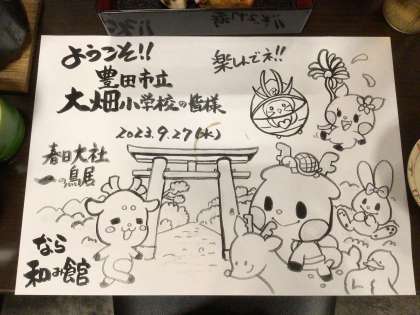 ようこそ!!
豊田市立
大畑小学校の皆様
楽しんでネ!!
2023.9.27(水)
春日大社
一の鳥居
なら
和み館